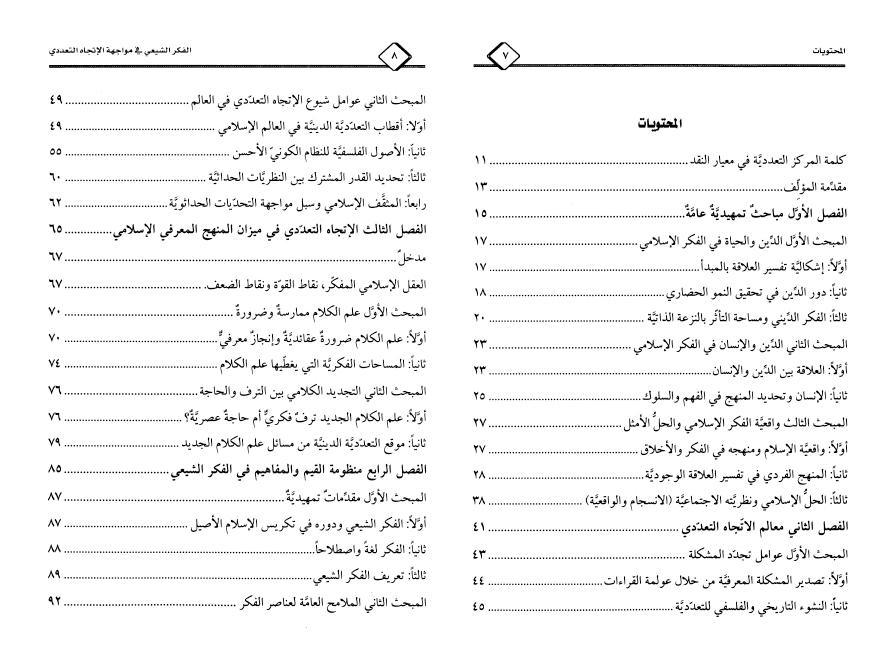 المحتويات
٧
المحتويات
كلمة المركز التعدديَّة في معيار النقد ........ ١١
مقدّمة المؤلِّف ........ ١٣
الفصل الأوَّل مباحثٌ تمهيديَّةٌ عامَّةٌ ........ ١٥
المبحث الأول الدِّين والحياة في الفكر الإسلامي ........ ١٧
أوَّلاً: إشكاليَّة تفسير العلاقة بالمبدأ ........ ١٧
ثانياً: دور الدِّين في تحقيق النمو الحضاري ........ ١٨
ثالثاً: الفكر الدِّيني ومساحة التأثّر بالنزعة الذاتيَّة ........ ٢٠
المبحث الثاني الدِّين والإنسان في الفكر الإسلامي ........ ٢٣
أوَّلاً: العلاقة بين الدِّين والإنسان ........ ٢٣
ثانياً: الإنسان وتحديد المنهج في الفهم والسلوك ........ ٢٥
المبحث الثالث واقعيَّة الفكر الإسلامي والحلُّ الأمثل ........ ٢٧
أوَّلاً: واقعيَّة الإسلام ومنهجه في الفكر والأخلاق ........ ٢٧
ثانياً: المنهج الفردي في تفسير العلاقة الوجوديَّة ........ ٢٨
ثالثاً: الحلُّ الإسلامي ونظريّته الاجتماعيَّة (الانسجام والواقعيَّة) ........ ٣٨
الفصل الثاني معالم الاتّجاه التعدّدي ........ ٤١
المبحث الأوَّل عوامل تجدّد المشكلة ........ ٤٣
أوَّلاً: تصدير المشكلة المعرفيَّة من خلال عولمة القراءات ........ ٤٤
ثانياً: النشوء التاريخي والفلسفي للتعدّديَّة ........ ٤٥
٨
الفكر الشيعي في مواجهة الإتجاه التعددي
المبحث الثاني عوامل شيوع الإتجاه التعدّدي في العالم ........ ٤٩
أوّلا: أقطاب التعدّديَّة الدينيَّة في العالم الإسلامي ........ ٤٩
ثانياً: الأصول الفلسفيَّة للنظام الكونيّ الأحسن ........ ٥٥
ثالثاً: تحديد القدر المشترك بين النظريَّات الحداثيَّة ........ ٦٠
رابعاً: المثقَّف الإسلامي وسبل مواجهة التحدّيات الحداثويَّة ........ ٦٢
الفصل الثالث الإتجاه التعدّدي في ميزان المنهج المعرفي الإسلامي ........ ٦٥
مدخلٌ ........ ٦٧
العقل الإسلامي المفكّر، نقاط القوّة ونقاط الضعف ........ ٦٧
المبحث الأوَّل علم الكلام ممارسةٌ وضرورةٌ ........ ٧٠
أوَّلاً: علم الكلام ضرورةٌ عقائديَّةٌ وإنجازٌ معرفيٌّ ........ ٧٠
ثانياً: المساحات الفكريَّة التي يغطِّيها علم الكلام ........ ٧٤
المبحث الثاني التجديد الكلامي بين الترف والحاجة ........ ٧٦
أوَّلاً: علم الكلام الجديد ترفٌ فكريٌّ أم حاجةٌ عصريَّةٌ؟ ........ ٧٦
ثانياً: موقع التعدّديَّة الدينيَّة من مسائل علم الكلام الجديد ........ ٧٩
الفصل الرابع منظومة القيم والمفاهيم في الفكر الشيعي ........ ٨٥
المبحث الأوَّل مقدّماتٌ تمهيديَّةٌ ........ ٨٧
أوَّلاً: الفكر الشيعي ودوره في تكريس الإسلام الأصيل ........ ٨٧
ثانياً: الفكر لغةً واصطلاحاً ........ ٨٨
ثالثاً: تعريف الفكر الشيعي ........ ٨٩
المبحث الثاني الملامح العامَّة لعناصر الفكر ........ ٩٢